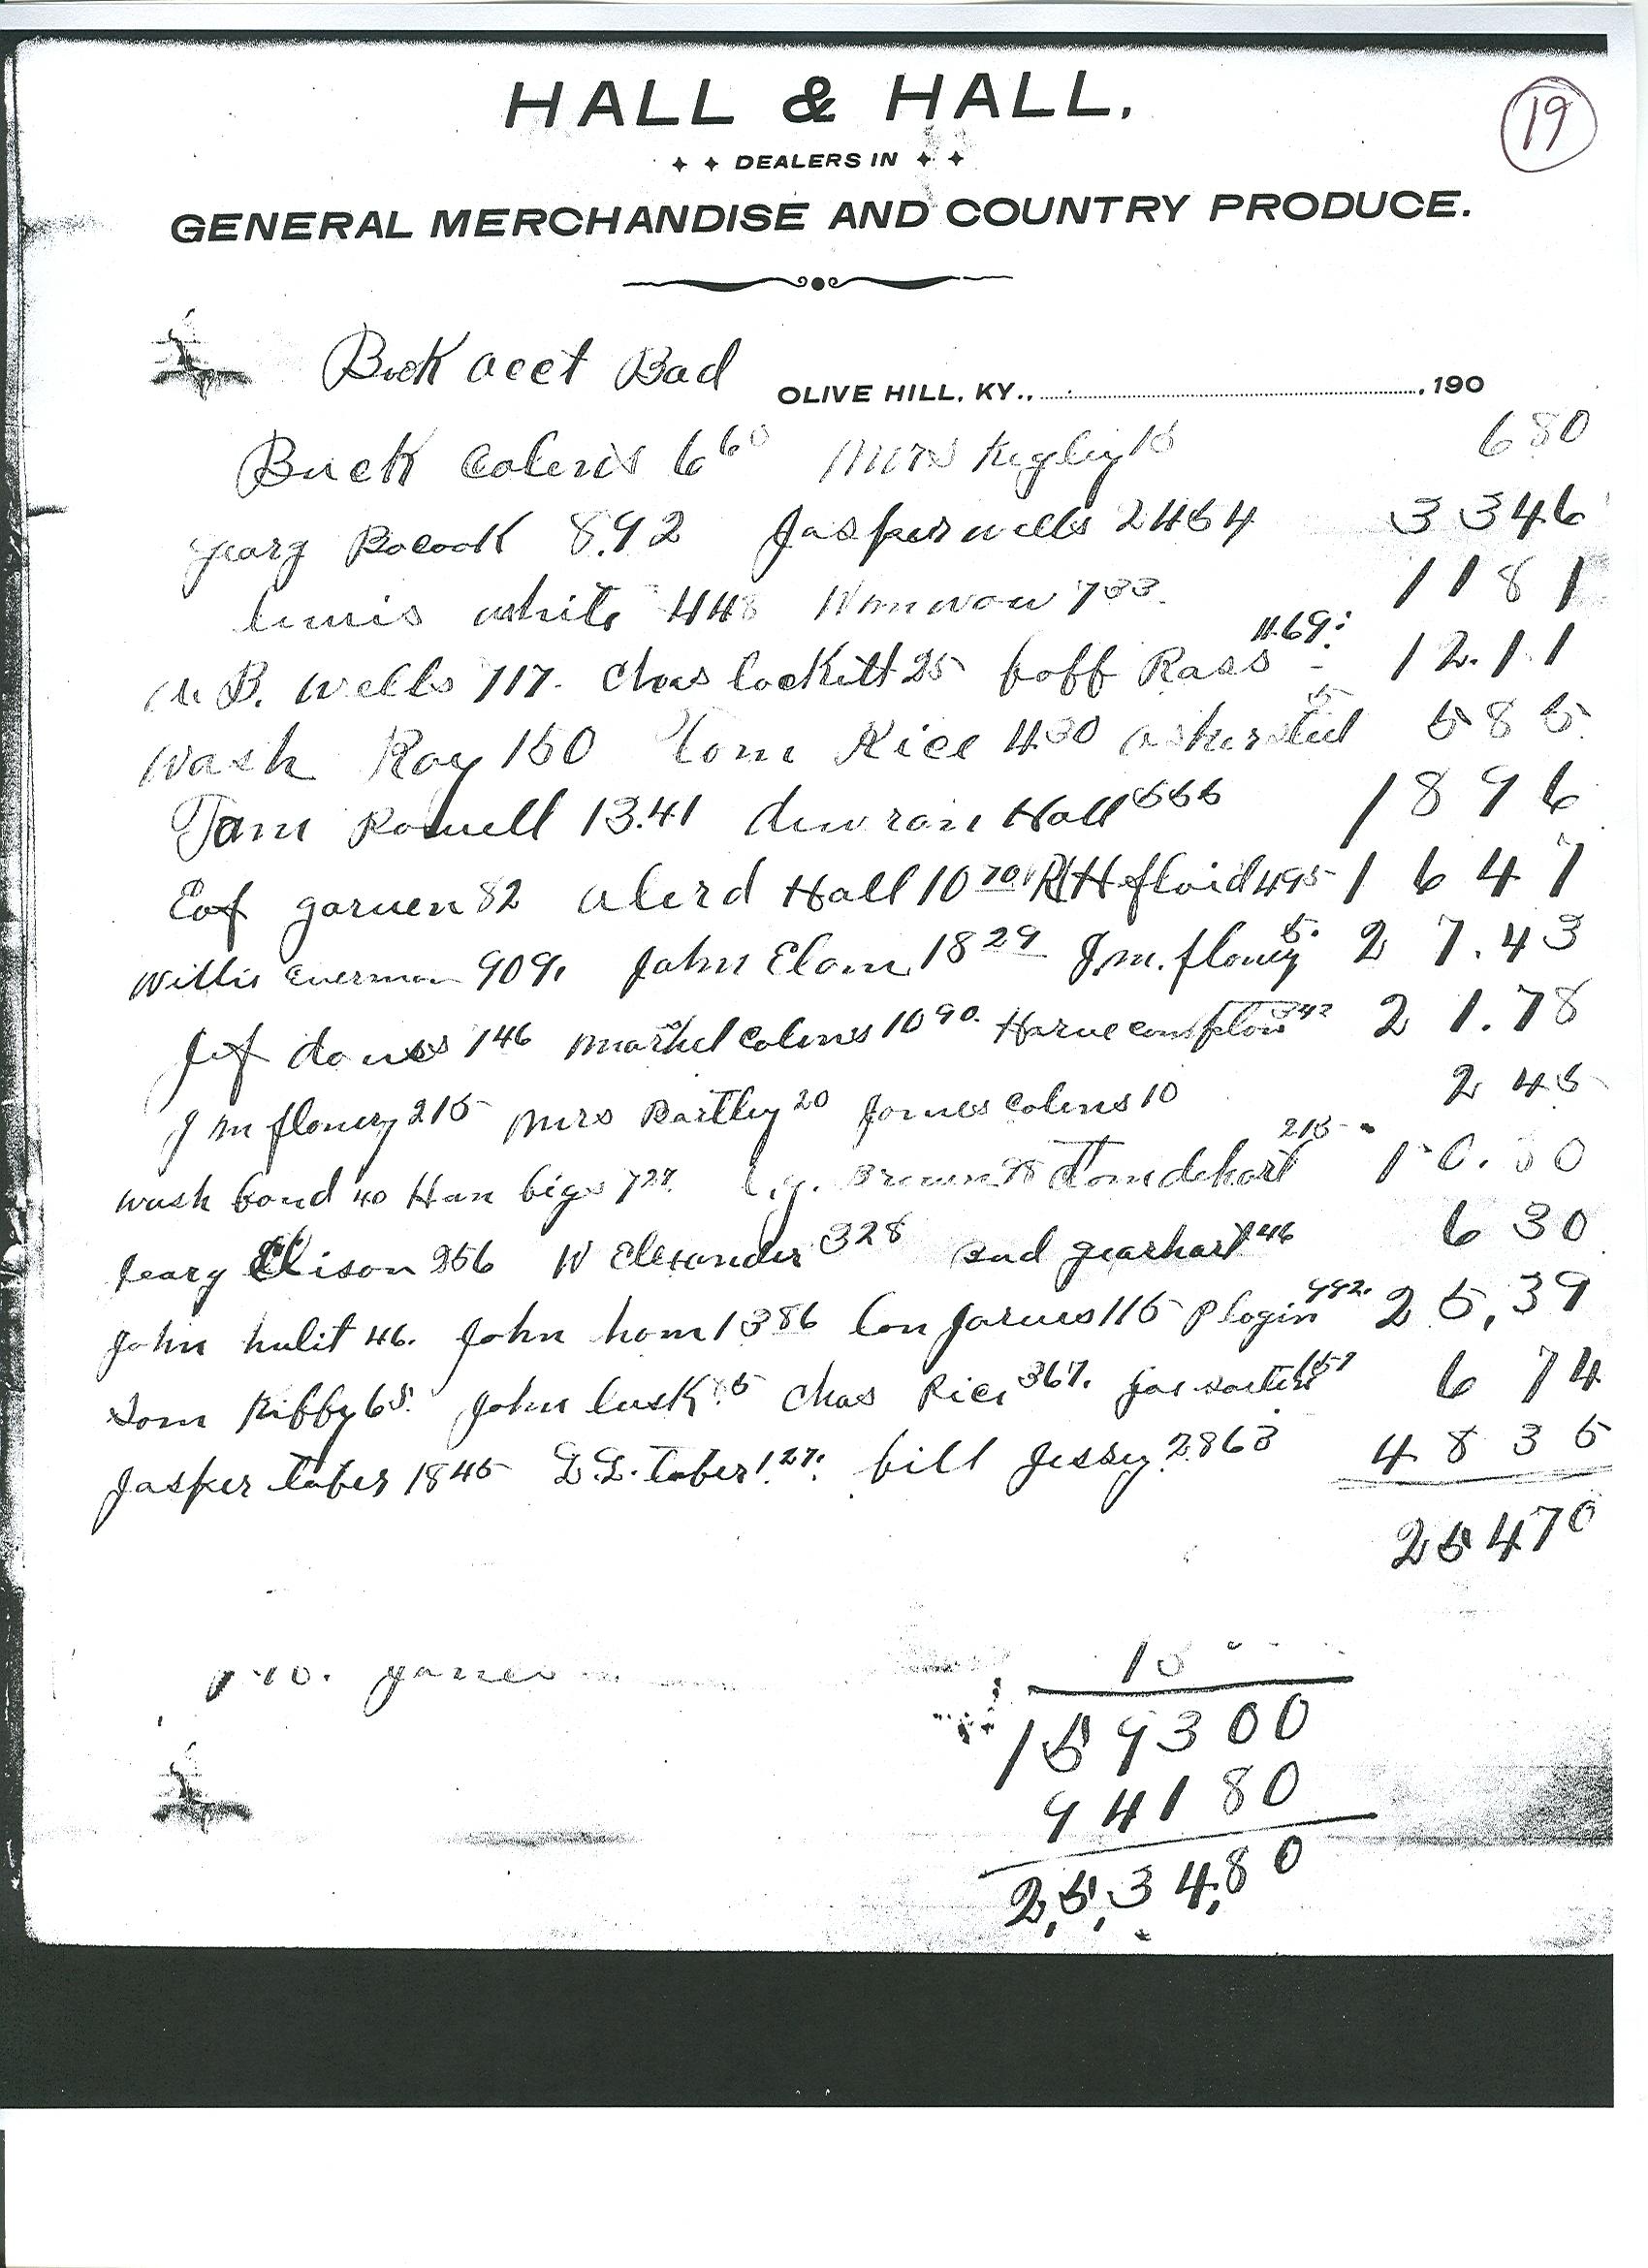 HALL & HALL.
19
DEALERS IN
GENERAL MERCHANDISE AND COUNTRY PRODUCE.
Book acct Bad
OLIVE HILL, KY., , 190
Buck Colins 6 60 Mrs Kegley 680
gearg Pocook 8.92 Jasper wells 2454 3346
luuis white 448 733 1181
B. wells 717. Chas lockitt 25 boff Rass 4.69 12.11
Wash Ray 150 Tom Rice 430 5 585
Tam Powell 13.41 Hall 555 1896
garven 82 alerd Hall 10 70 R H floid 495 1647
Willis Everman 909. John Elam 18 29 J.m. flouery 5. 27.43
Jef daues 746 markel Colins 10 90. Harve 342 21.78
J m flouery 215 Mrs Bartley 20 James Colins 10 245
Wash bond 40 Han bigs 727. Brown Tom dehart 215
Jearg Elison 256 W Elexander 328 Bud gearhart 46 630
John hulit 46. John ham 13 86 Lon Jarues 115 P login 992. 25,39
Tom Kibby 65. John lusk Chas Rice 367. Jas 157 674
Jasper taber 1845 D.L. taber 1.27. bill Jessey 2863 4835
25470
159300
94180
2,5,34,80